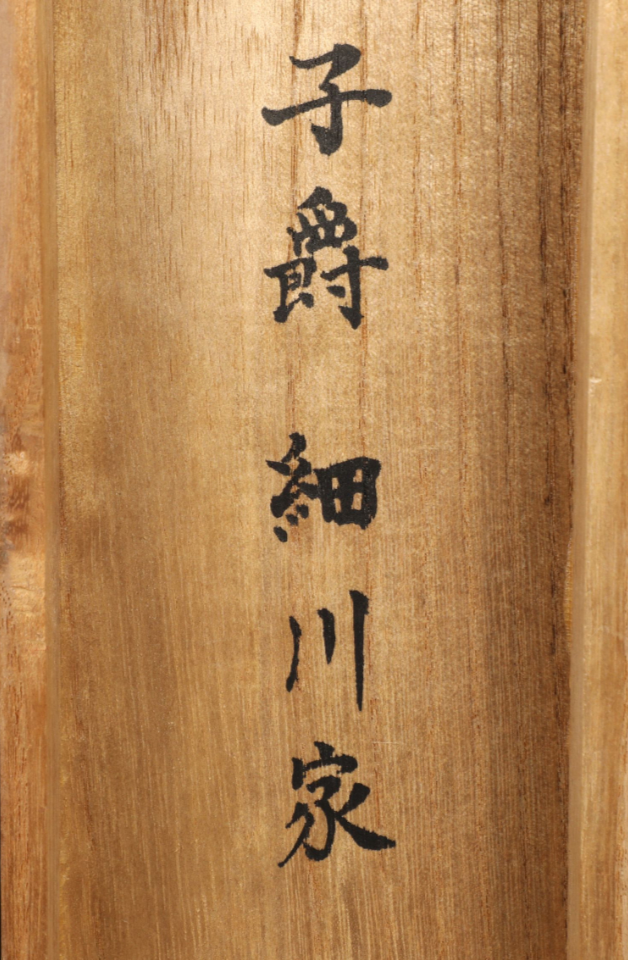 子爵 細川家